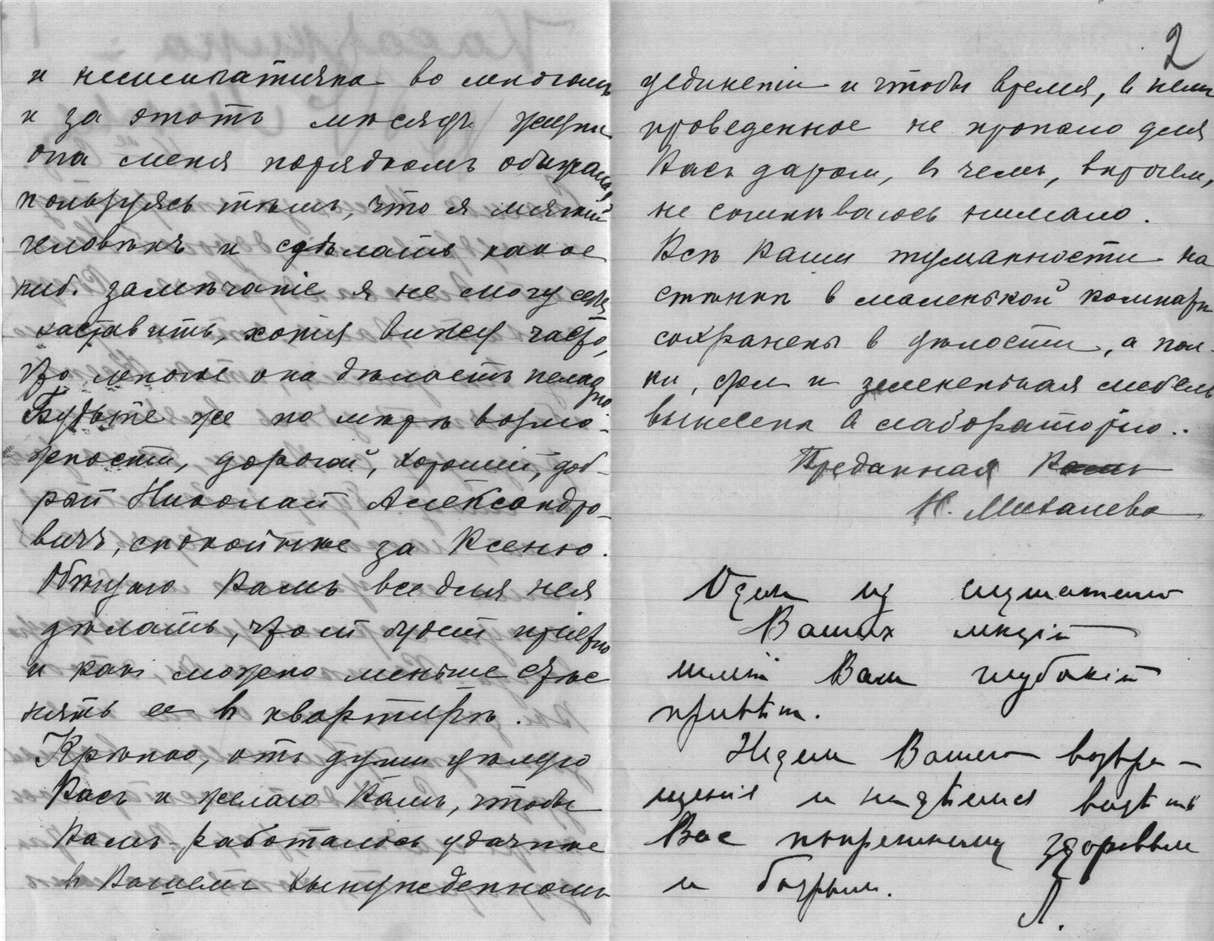 и несимпатична во многомъ
и за этотъ мѣсяцъ жизни
она меня порядкомъ обижала,
пользуясь тѣмъ, что я мягкій
человѣкъ и сдѣлать какое
ниб. замѣчаніе я не могу себя
заставить, хотя вижу часто,
что многое она дѣлаетъ неладно.
Будьте же по мѣрѣ возмо-
жности, дорогой, хорошій, доб-
рый Николай Александро-
вичъ, спокойнѣе за Ксеню.
Обѣщаю Вамъ все для нея
дѣлать, что ей будетъ пріятно
и какъ можно меньше стѣс
нять ее в квартирѣ.
Крѣпко, отъ души цѣлую
Васъ и желаю Вамъ, чтобы
Вамъ работалось удачнѣе
в Вашемъ вынужденномъ
2
уединеніи и чтобы время, в немъ
проведенное не пропало для
Васъ даром, в чемъ, впрочем,
не сомнѣваюсь нимало.
Всѣ Ваши туманности на
стѣнкѣ в маленькой комнатѣ
сохранены в цѣлости, а пол-
ки, и мебель
вынесена в лабораторію..
Преданная Вамъ
Н. Михалева
Один из слушателей
Ваших лекцій
шлет Вам глубокій
привѣт.
Ждем Вашего возвра-
щенія и надѣемся видѣть
Вас попрежнему здоровым
и бодрым.
Л.